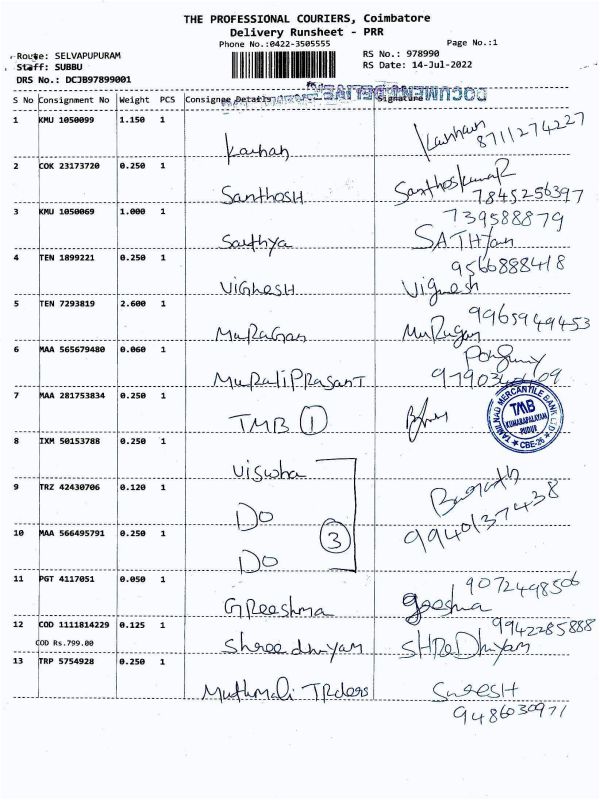 THE PROFESSIONAL COURIERS, Coimbatore
Delivery Runsheet - PRR
Phone No.:0422-3505555
Page No.:1
Route: SELVAPUPURAM
RS No.: 978990
Staff: SUBBU
RS Date: 14-Jul-2022
DRS No.: DCJB97899001
S No Consignment No Weight PCS Consignee Details Signature
1 KMU 1050099 1.150 1
Kannan Kannan 8711274227
2 COK 23173720 0.250 1
SanthosH SanthoskumaR
7845256397
3 KMU 1050069 1.000 1 739588879
Sathya SATHyan
4 TEN 1899221 0.250 1 9566888418
ViGHesH Vignesh
5 TEN 7293819 2.600 1 9965949453
MuRaGan MuRugan
6 MAA 565679480 0.060 1
MuRaliPRasanT
7 MAA 281753834 0.250 1
TMB 1
TAMILNAD MERCANTILE BANK LTD.
TMB
KUMARAPALAYAM
PUDUR
CBE-26
8 IXM 50153788 0.250 1
Viswha
9 TRZ 42430706 0.120 1
Do Barath
9940137438
10 MAA 566495791 0.250 1
3
Do
11 PGT 4117051 0.050 1 9072498506
GReeshma geeshma
12 COD 1111814229 0.125 1 9942285888
COD Rs.799.00
Shree dhiyam SHReDhiyam
13 TRP 5754928 0.250 1
Muthmali TRders SuresH
9486030971